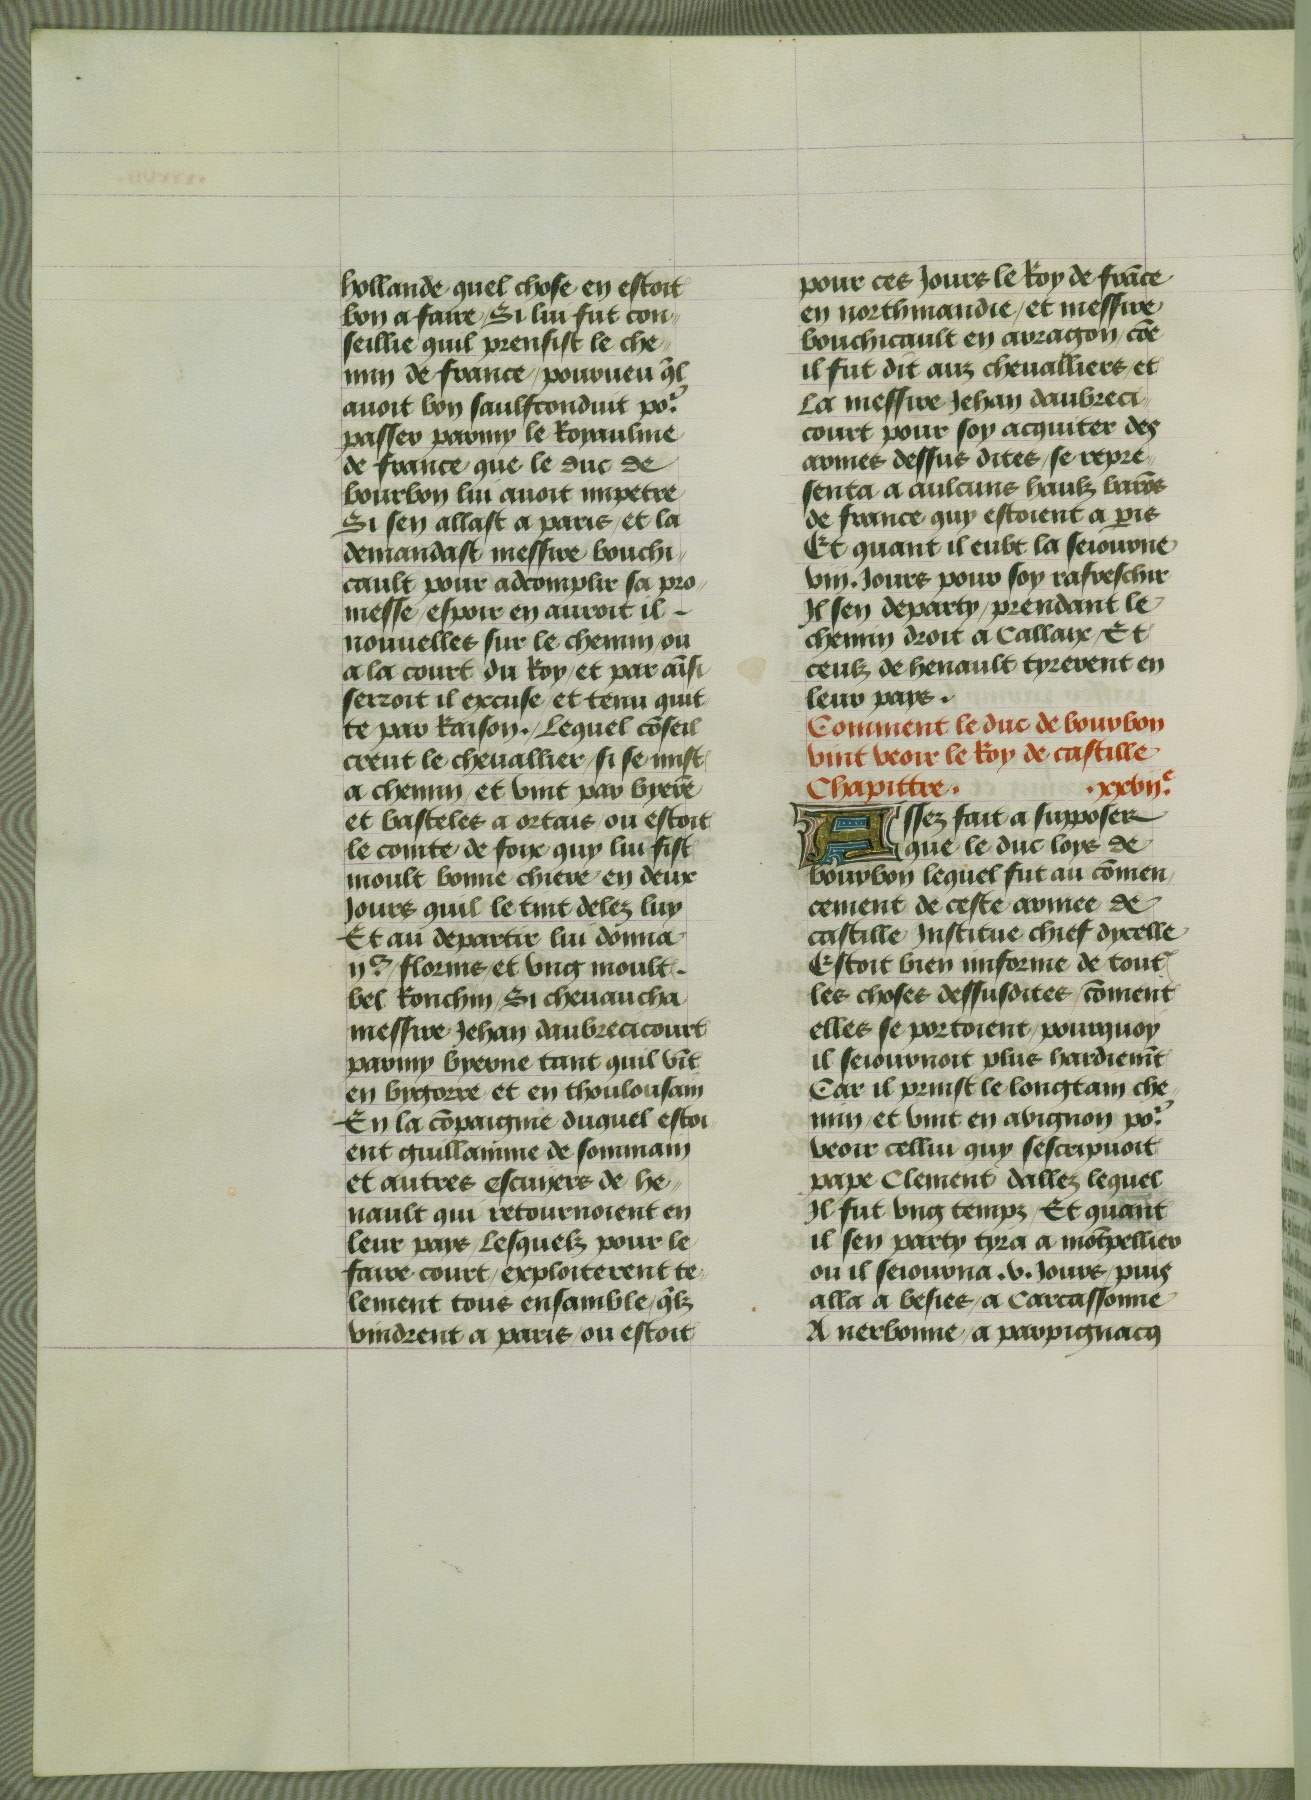 hollande quel chose en estoit
bon a faire / Si lui fut con-
seillie quil prensist le che-
min de france / pourueu q̃l
auoit bon saulfconduit poʳ
passer parmy le Royaulme
de france que le duc de
bourbon lui auoit impetre
Si sen allast a paris / et la
demandast messire bouchi-
cault pour adcomplir sa pro-
messe / espoir en auroit il -
nouuelles sur le chemin ou
a la court du Roy / et par aĩsi
serroit il excuse / et tenu quit
te par Raison. / Lequel cõseil
creut le cheuallier / si se mist
a chemin / et vint par byerñe
et basteles a ortais / ou estoit
le comte de foix quy lui fist
moult bonne chiere / en deux
Jours quil le tint delez luy
Et au departir lui donna
ijᶜ / florins / et vng moult -
bel Ronchin / Si cheuaucha
messire Jehan daubrecicourt
parmy byerne tant quil vĩt
en bygorre et en thoulousain
En la cõpaignie duquel estoi-
ent guillamme de sommain
et autres escuyers de he-
nault qui retournoient en
leur pays / Lesquelz pour le
faire court / exploiterent te-
lement tous ensamble / q̃lz
vindrent a paris / ou estoit
pour ces Jours le Roy de frãce
en northmandie / et messire
bouchicault en arragon / cõe
il fut dit aux cheualliers et
La messire Jehan daubreci-
court pour soy acquiter des
armes dessus dites / se repre-
senta a aulcuns haulz barõs
de france quy estoient a p̃is
Et quant il eubt la seiourne
viij. Jours pour soy rafreschir
Il sen departy / prendant le
chemin droit a Callaix / Et
ceulz de henault tyrerent en
leur pays .
Comment le duc de bourbon
vint veoir le Roy de castille
Chapittre . . xxvijᵉ.
Assez fait a supposer
que le duc loys de
bourbon lequel fut au cõmen-
cement de ceste armee de
castille Institue chief dycelle
Estoit bien imforme de tout̾
les choses dessusdites / cõment
elles se portoient / pourquoy
il seiournoit plus hardiem̃t
Car il prinst le longtain che-
min / et vint en avignon poʳ
veoir cellui quy sescripuoit
pape Clement dallez lequel
Il fut vng tempz / Et quant
il sen party tyra a mõtpellier
ou il seiourna .v. Jours / puis
alla a besies / a Carcassonne
A nerbonne / a parpignacq